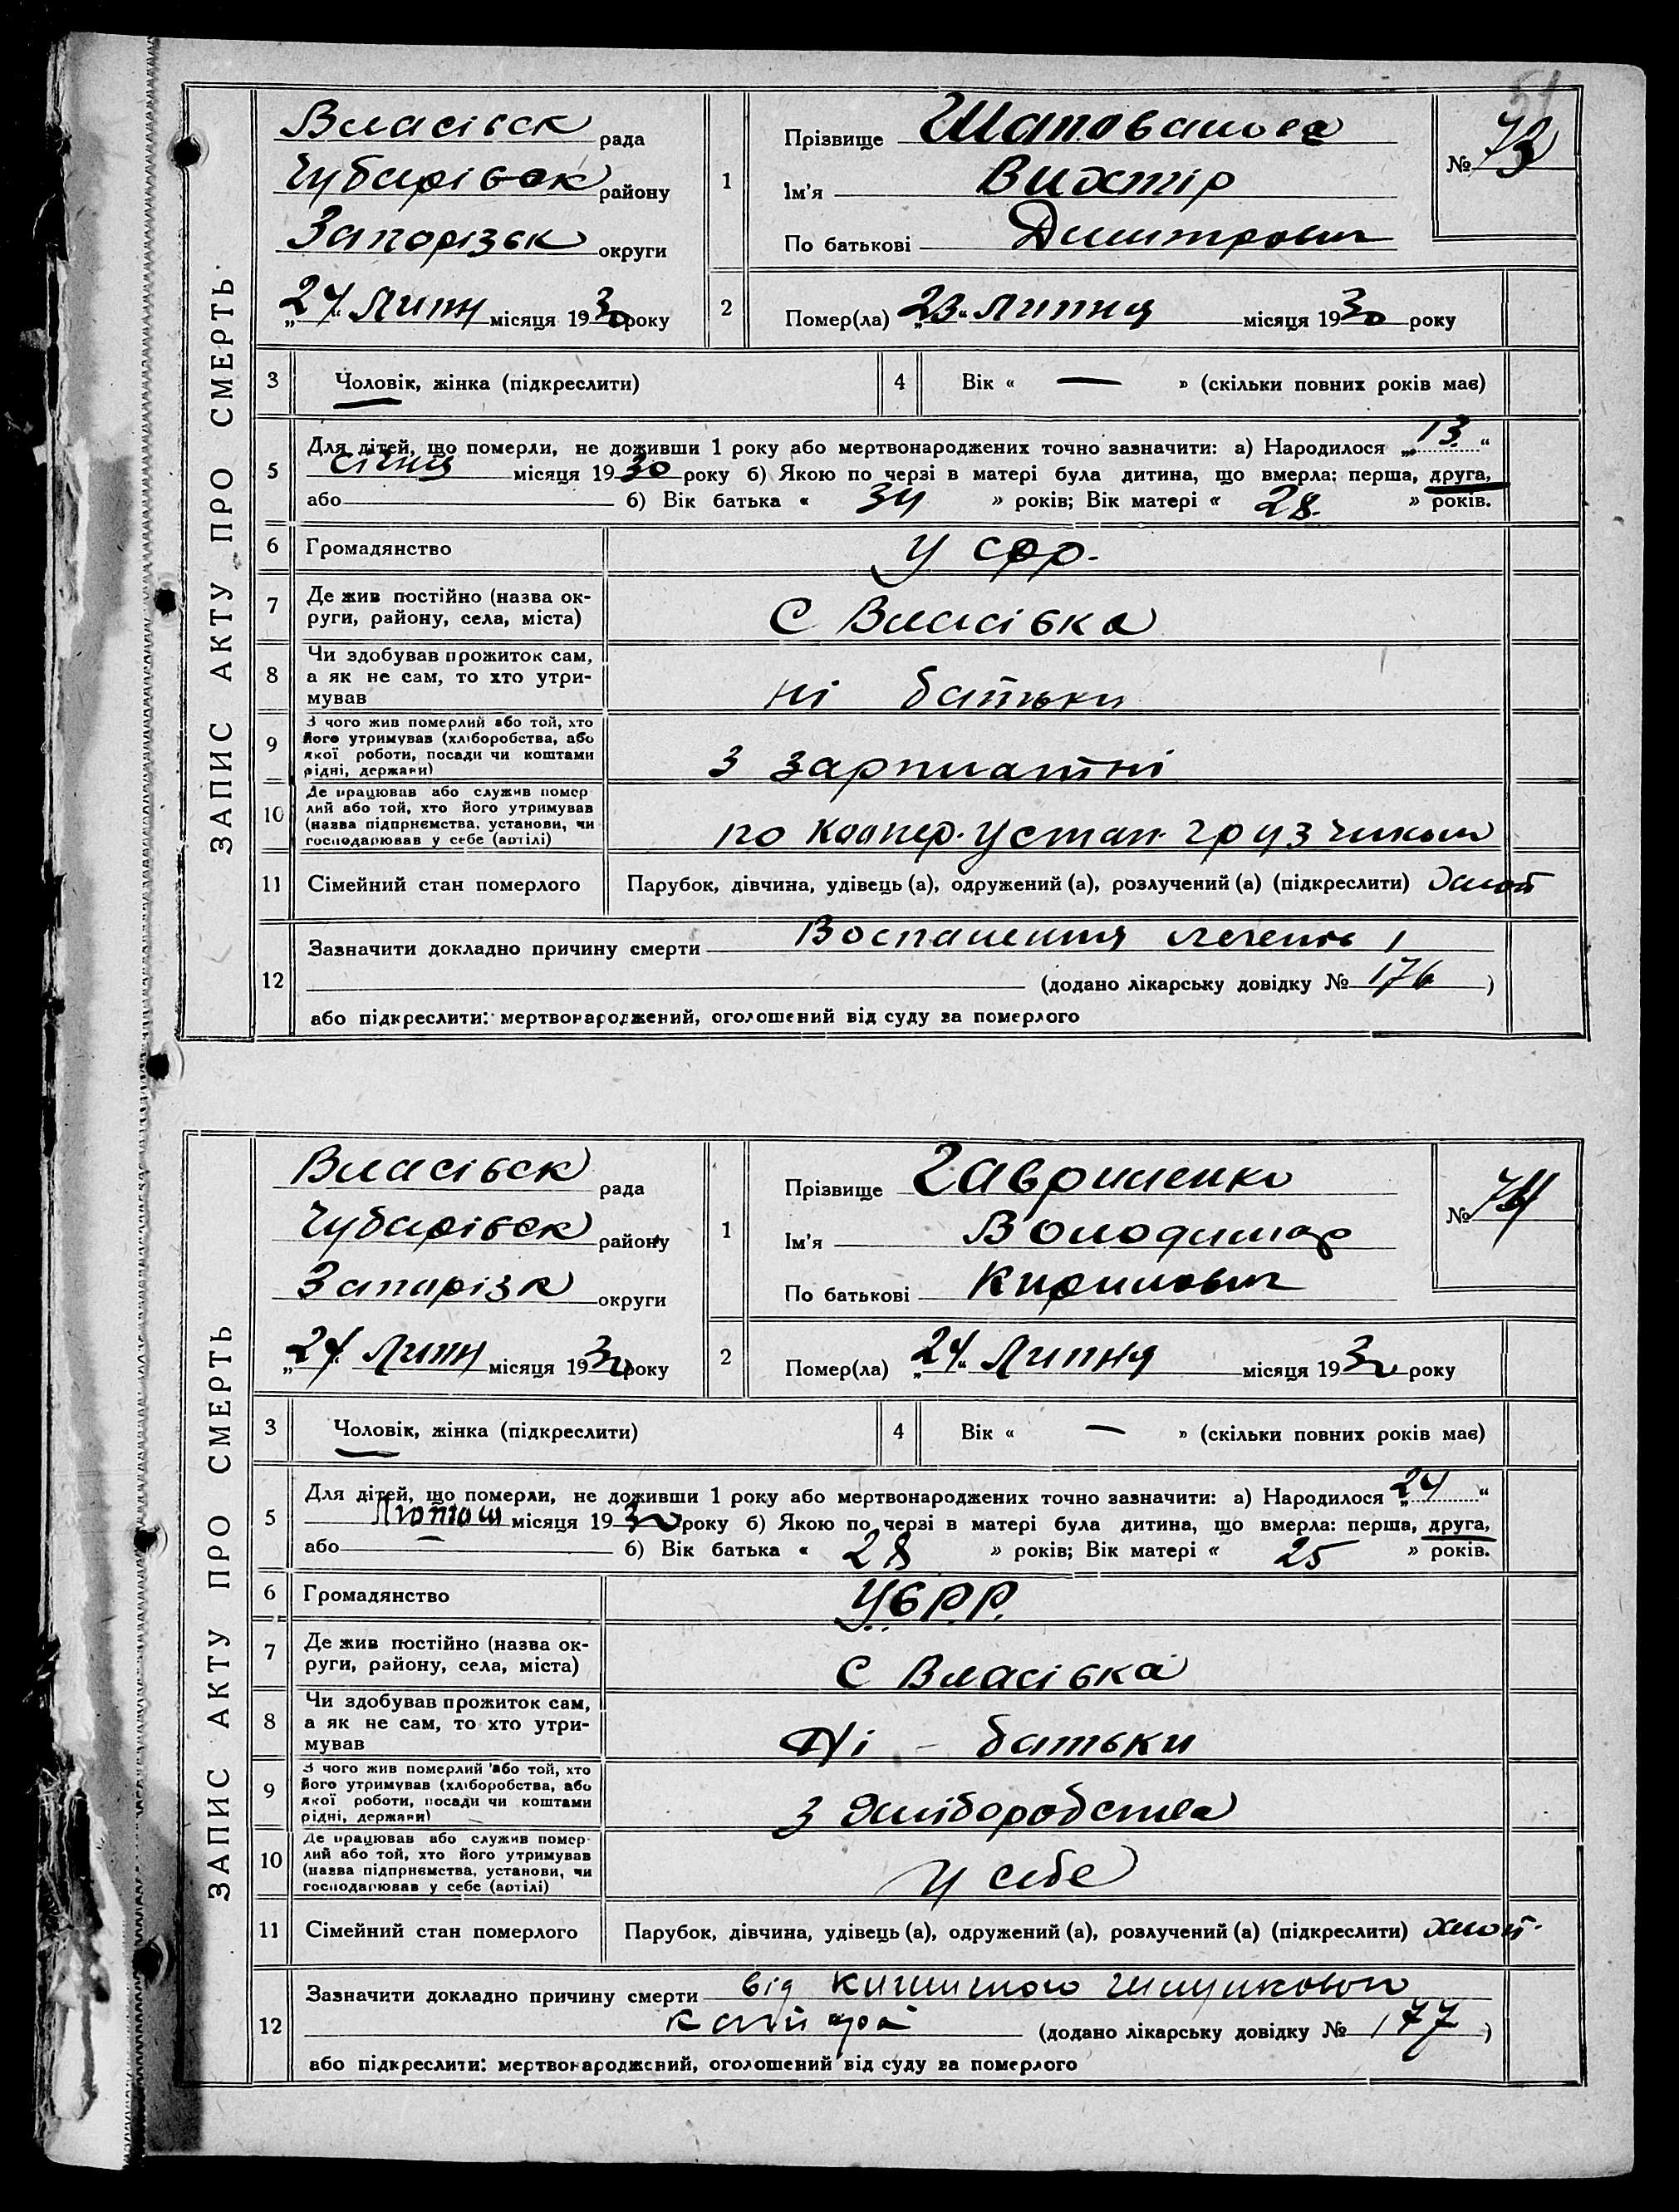 51
ЗАПИС АКТУ ПРО СМЕРТЬ
Власівск рада
Чубарівск району
Запорізьк округи
„24“ Липн місяця 1930 року
1
Прізвище Шаповалова
Ім'я Вихтір
По батькові Дмитрович
№ 73
2
Помер(ла) „23“ Липня місяця 1930 року
3 Чоловік, жінка (підкреслити)
4 Вік « — » (скільки повних років має)
5
Для дітей, що померли, не доживши 1 року або мертвонароджених точно зазначити: а) Народилося „13“
січня місяця 1930 року б) Якою по черзі в матері була дитина, що вмерла: перша, друга,
або б) Вік батька « 34 » років; Вік матері « 28. » років.
6 Громадянство У СРР.
7 Де жив постійно (назва ок-
руги, району, села, міста)
С Власівка
8 Чи здобував прожиток сам,
а як не сам, то хто утри-
мував
ні батьки
9 З чого жив померлий або той, хто
його утримував (хліборобства, або
якої роботи, посади чи коштами
рідні, держави)
З зарплатні
10 Де працював або служив помер
лий або той, хто його утримував
(назва підприємства, установи, чи
господарював у себе (артілі)
по Коопер. Устан. грузчиком
11 Сімейний стан померлого Парубок, дівчина, удівець (а), одружений (а), розлучений (а) (підкреслити) Хлоп
12
Зазначити докладно причину смерти Воспалення легень
(додано лікарську довідку № 176 )
або підкреслити: мертвонароджений, оголошений від суду за померлого
ЗАПИС АКТУ ПРО СМЕРТЬ
Власівск рада
Чубарівск району
Запорізк округи
„24“ Липн місяця 1930 року
1
Прізвище Гавриленко
Ім'я Володимар
По батькові Кирилович
№ 74
2
Помер(ла) „24“ Липня місяця 1930 року
3 Чоловік, жінка (підкреслити)
4 Вік « — » (скільки повних років має)
5
Для дітей, що померли, не доживши 1 року або мертвонароджених точно зазначити: а) Народилося „24“
Лютого місяця 1930 року б) Якою по черзі в матері була дитина, що вмерла: перша, друга,
або — б) Вік батька « 28 » років; Вік матері « 25 » років.
6 Громадянство УСРР.
7 Де жив постійно (назва ок-
руги, району, села, міста)
С Власівка
8 Чи здобував прожиток сам,
а як не сам, то хто утри-
мував
Ні – батьки
9 З чого жив померлий або той, хто
його утримував (хліборобства, або
якої роботи, посади чи коштами
рідні, держави)
З хліборобства
10 Де працював або служив помер-
лий або той, хто його утримував
(назва підприємства, установи, чи
господарював у себе (артілі)
У себе
11 Сімейний стан померлого Парубок, дівчина, удівець (а), одружений (а), розлучений (а) (підкреслити) хлоп.
12
Зазначити докладно причину смерти від
(додано лікарську довідку № 177 )
або підкреслити: мертвонароджений, оголошений від суду за померлого